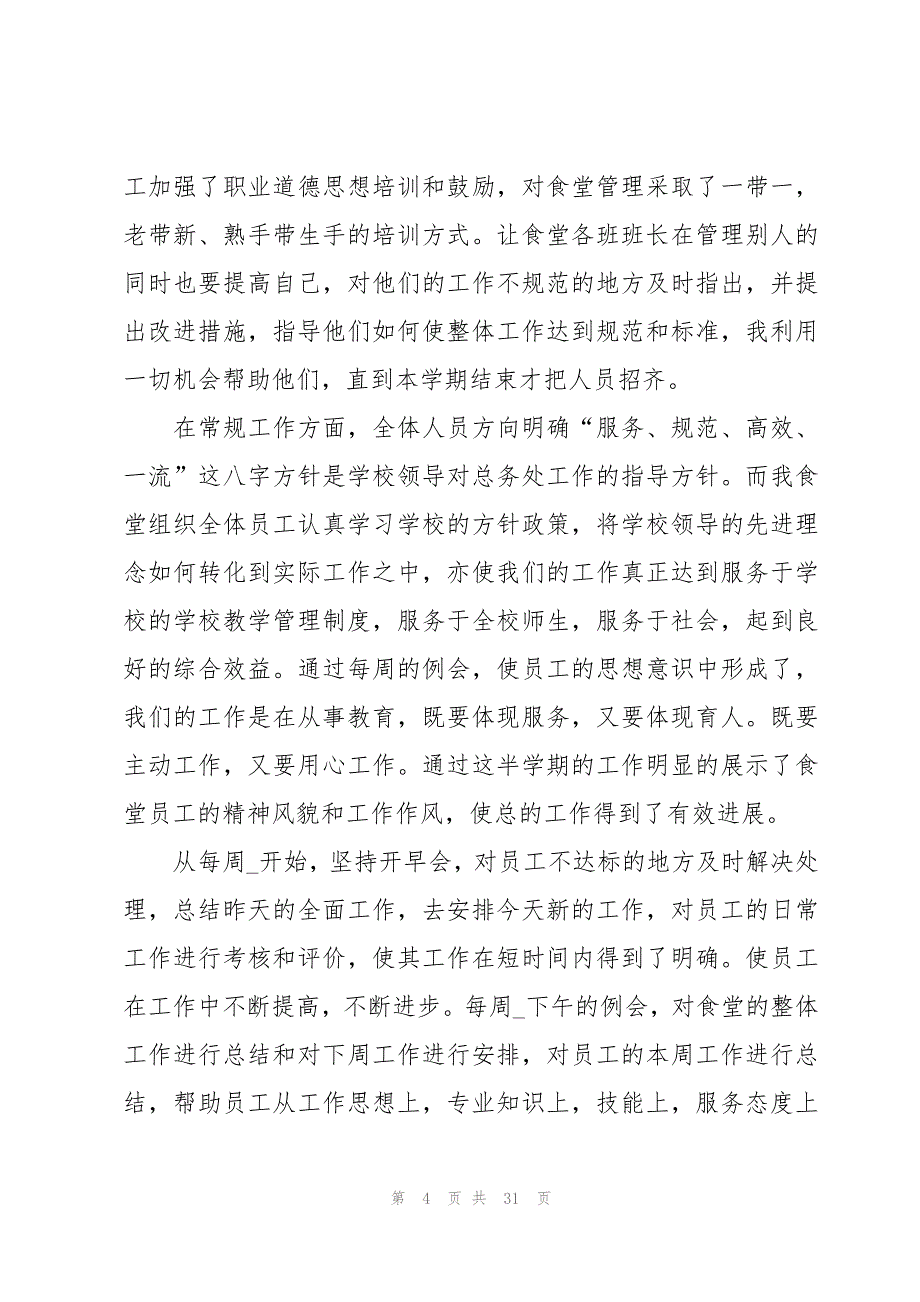 工加强了职业道德思想培训和鼓励，对食堂管理采取了一带一，
老带新、熟手带生手的培训方式。让食堂各班班长在管理别人的
同时也要提高自己，对他们的工作不规范的地方及时指出，并提
出改进措施，指导他们如何使整体工作达到规范和标准，我利用
一切机会帮助他们，直到本学期结束才把人员招齐。
在常规工作方面，全体人员方向明确“服务、规范、高效、
一流”这八字方针是学校领导对总务处工作的指导方针。而我食
堂组织全体员工认真学习学校的方针政策，将学校领导的先进理
念如何转化到实际工作之中，亦使我们的工作真正达到服务于学
校的学校教学管理制度，服务于全校师生，服务于社会，起到良
好的综合效益。通过每周的例会，使员工的思想意识中形成了，
我们的工作是在从事教育，既要体现服务，又要体现育人。既要
主动工作，又要用心工作。通过这半学期的工作明显的展示了食
堂员工的精神风貌和工作作风，使总的工作得到了有效进展。
从每周_开始，坚持开早会，对员工不达标的地方及时解决处
理，总结昨天的全面工作，去安排今天新的工作，对员工的日常
工作进行考核和评价，使其工作在短时间内得到了明确。使员工
在工作中不断提高，不断进步。每周_下午的例会，对食堂的整体
工作进行总结和对下周工作进行安排，对员工的本周工作进行总
结，帮助员工从工作思想上，专业知识上，技能上，服务态度上
第 4 页 共 31 页